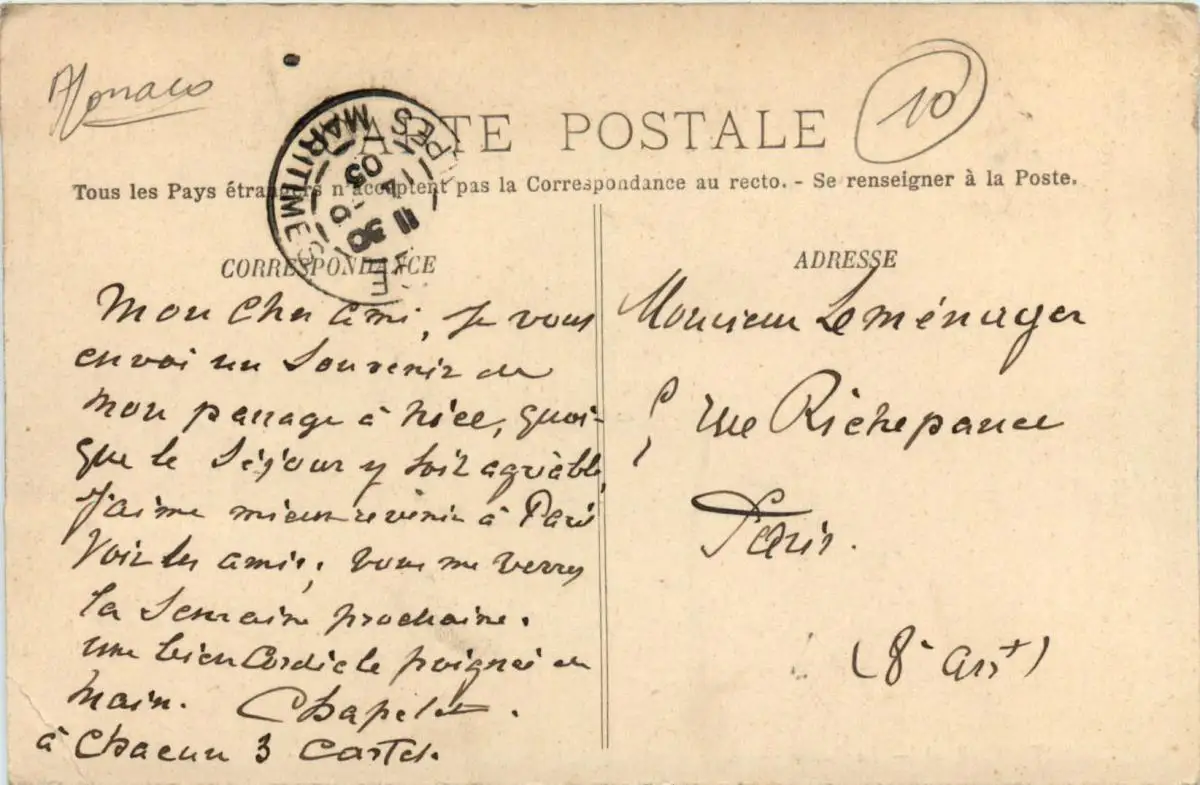 Monaco
10
CARTE POSTALE
Tous les Pays étrangers n'acceptent pas la Correspondance au recto. - Se renseigner à la Poste.
ALPES MARITIMES
11 30
05
CORRESPONDANCE
Mon cher ami, je vous
envoi un Souvenir de
mon passage à Nice, quoi-
que le Séjour y soit agréable,
J'aime mieux revenir à Paris
Voir les amis, vous me verrez
la Semaine prochaine.
une bien Cordiale poignée de
main. Chapelet.
à chacun 3 cartes.
ADRESSE
Monsieur Leménager
rue Richepance
Paris.
(8e arrt)